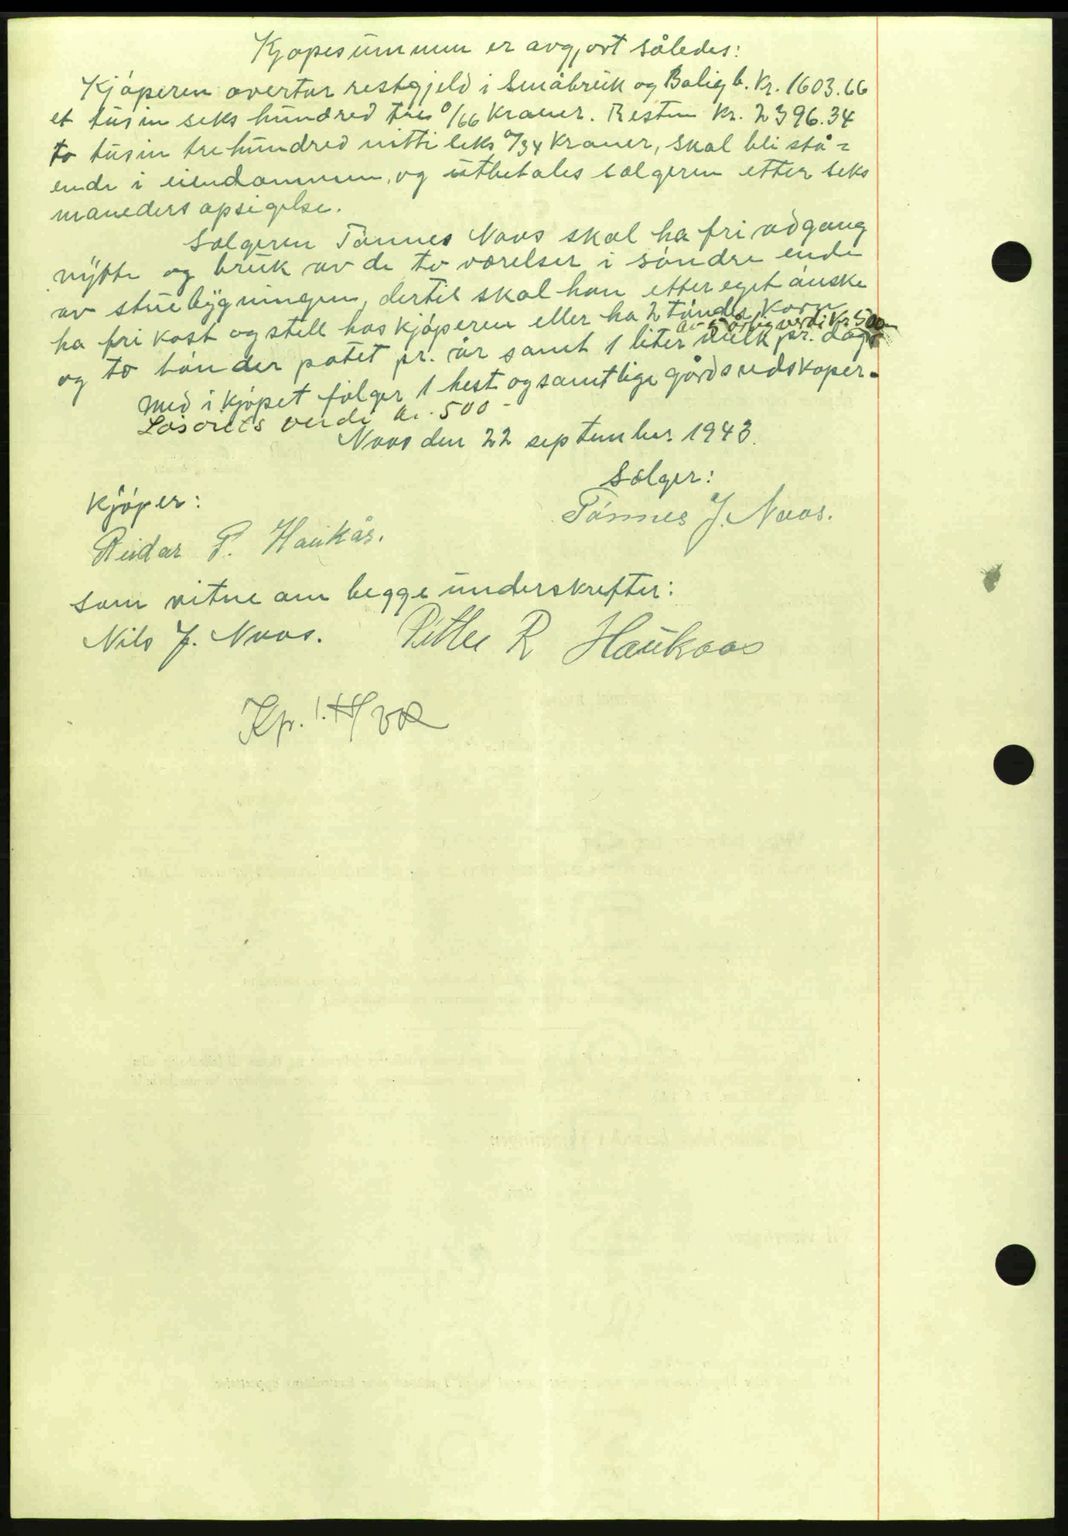 Kjøpesummen er avgjort således:
Kjøperen overtar restgjeld i Småbruk og Bolig b. kr. 1603.66
et tusin seks hundred tre 0/66 kroner. Resten kr. 2396.34
to tusin trehundred nitti seks 0/34 kroner, skal bli stå=
ende i eiendommen, og utbetales sælgeren etter seks
måneders opsigelse.
Sælgeren Tønnes Naas skal ha fri adgang
nytte og bruk av de to værelser i søndre ende
av stuebygningen, dertil skal han etter eget ønske
ha fri kost og stell hos kjøperen eller ha 2 tønder korn
og to tønder potet pr. år samt 1 liter melk pr. dag.
av 5 årlig verdi kr. 500-
Med i kjøpet følger 1 hest og samtlige gårdsredskaper.
Løsørets verdi kr. 500-
Naas den 22 september 1943.
Sælger:
Kjøper:
Tønnes J. Naas.
Reidar P. Haukås.
Som vitne om begge underskrefter:
Nils J. Naas. Pitter R Haukaas
Kp.